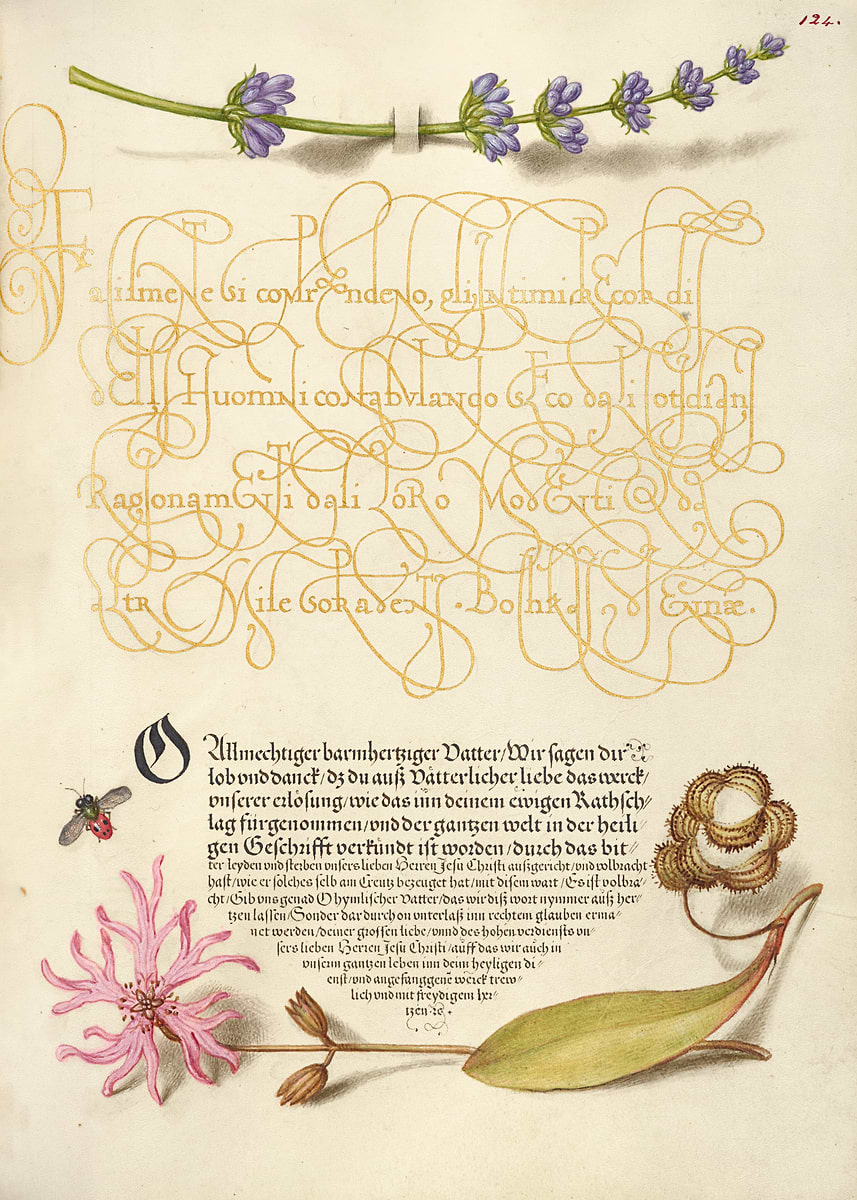 124.
Facilmente si comprendeno, gli intimi Recordi
delli Huomini confabulando seco da li cotidiani
Ragionamenti da li loro Moderti Et da
altr
O Allmechtiger barmhertziger Vatter/Wir sagen dir
lob vnd danck/dz du auß Vätterlicher liebe das werck/
vnserer erlösung/wie das inn deinem ewigen Rathsch〃
lag fürgenommen/vnd der gantzen welt in der heili
gen Geschrifft verkündt ist worden/durch das bit〃
ter leyden vnd sterben vnsers lieben Herren Jesu Christi außgericht/vnd volbracht
hast/wie er solches selb am Creutz bezeuget hat/mit disem wart/Es ist volbra〃
cht/Gib vns genad O hymlischer Vatter/das wir diß wort nymmer auß her〃
tzen lassen/Sonder dardurch on vnterlaß inn rechtem glauben erma〃
net werden/deiner grossen liebe/vnnd des hohen verdiensts vn〃
sers lieben Herren Jesu Christi/auff das wir auch in
vnserm gantzen leben inn deim heyligen di〃
enst/vnd angefanggene werck trew〃
lich vnd mit freydigem her〃
tzen ꝛc.